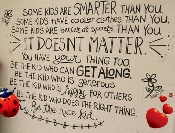 SOME KIDS ARE SMARTER THAN YOU.
SOME KIDS HAVE cooler clothes THAN YOU.
SOME KIDS ARE better at sports THAN YOU.
IT DOESN'T MATTER.
YOU HAVE your THING TOO.
BE THE KID WHO CAN GET ALONG.
BE THE KID WHO IS generous
BE THE KID WHO IS happy FOR OTHERS
BE THE KID WHO DOES THE RIGHT THING.
Be the nice kid.